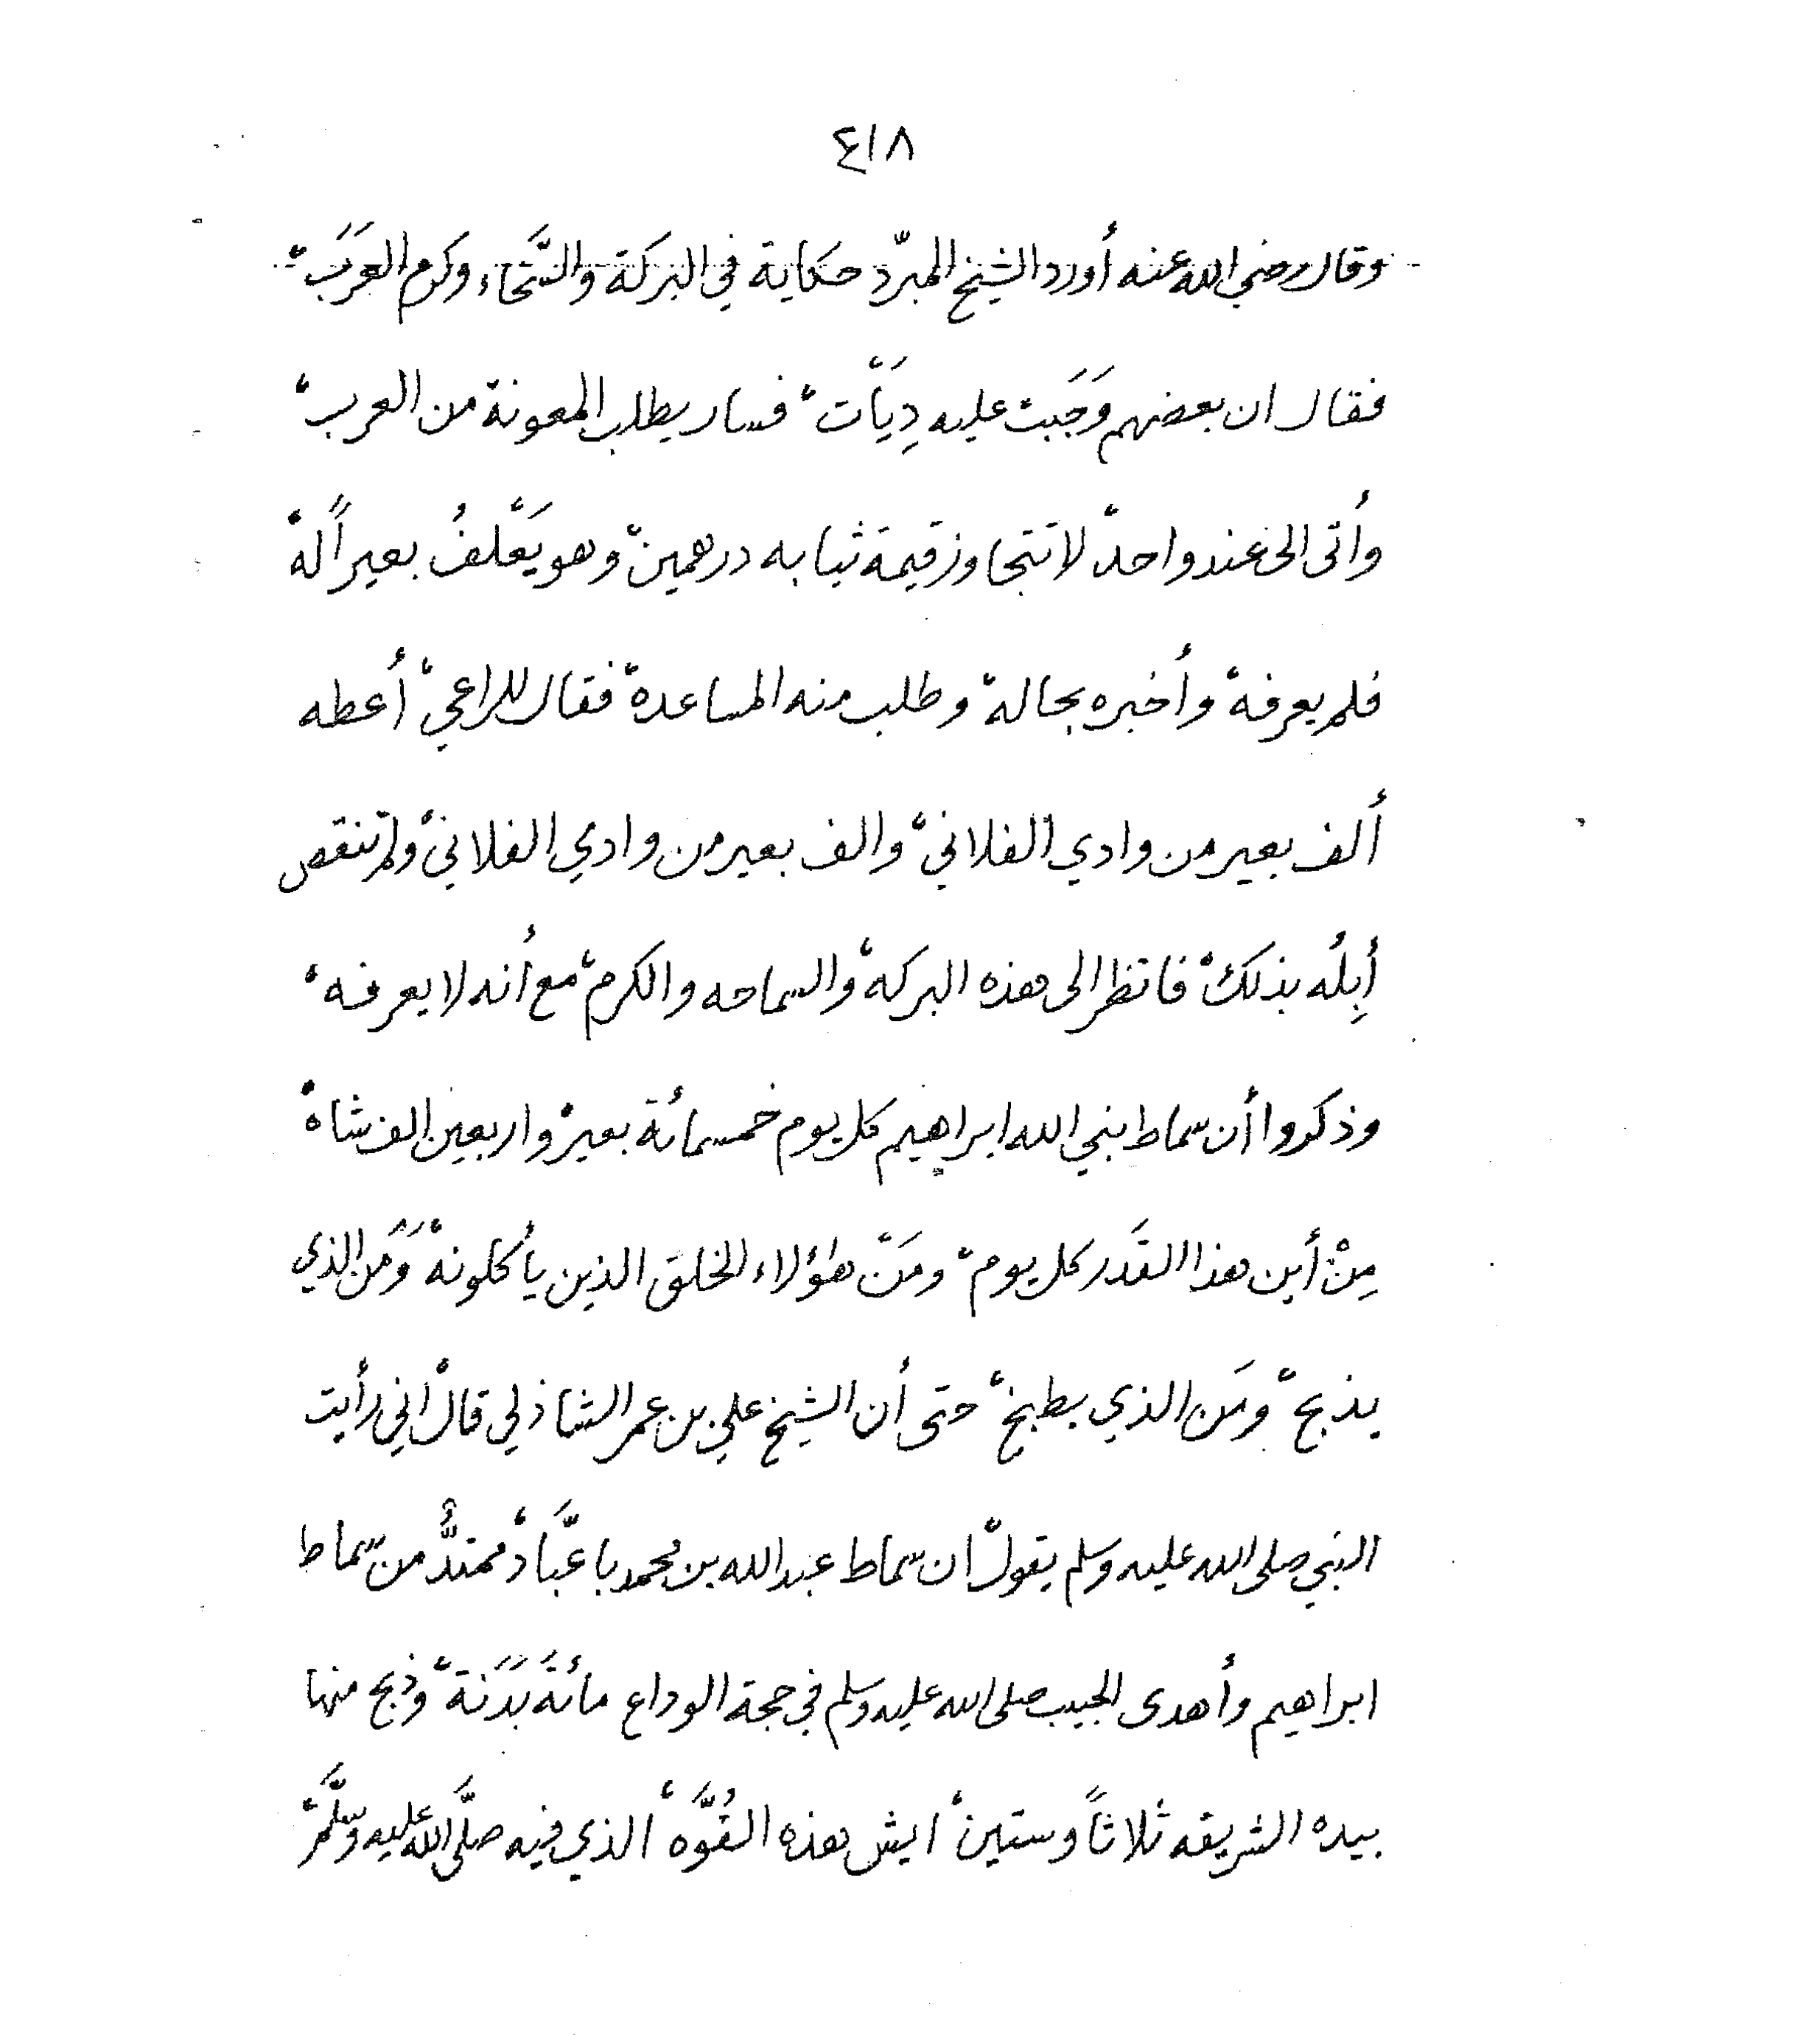 ٤١٨
وقال رضي الله عنه أورد الشيخ المبرّد حكاية في البركة والسَّخاء وكرم العَرَبْ
فقال ان بعضهم وَجَبت عليه دِيَاْت، فسار يطلب المعونة من العرب،
وأتى الى عند واحدْ لا تتجاوز قيمة ثيابه درهمينْ وهو يَعْلفُ بعيراً لهْ
فلم يعرفهْ وأخبره بحالهْ وطلب منه المساعدهْ فقال للراعيْ أعطه
ألف بعير من وادي الفلانيْ والف بعير من وادي الفلانيْ ولم تنقص
أبِلُه بذلكْ فانظر الى هذه البركهْ والسماحه والكرمْ مع أنه لا يعرفه،
وذكروا أن سماط نبي الله ابراهيم كل يوم خمسمائة بعيرْ واربعين الف شاهْ
مِنْ أين هذا القَدر كل يومْ ومَنْ هؤلاء الخلق الذين يأكلونهْ وَمَن الذي
يذبحْ ومَن الذي يطبخْ حتى أن الشيخ علي بن عمر الشاذلي قالْ اني رأيت
النبي صلى الله عليه وسلم يقولْ ان سماط عبدالله بن محمد با عبَّادْ ممتدٌّ من سماط
ابراهيم وأهدى الحبيب صلى الله عليه وسلم في حجة الوداع مائةَ بَدَنةْ وذبح منها
بيده الشريفه ثلاثاً وستينْ ايش هذه القُوَّهْ الذي فيه صلَّى الله عليه وسلَّمْ